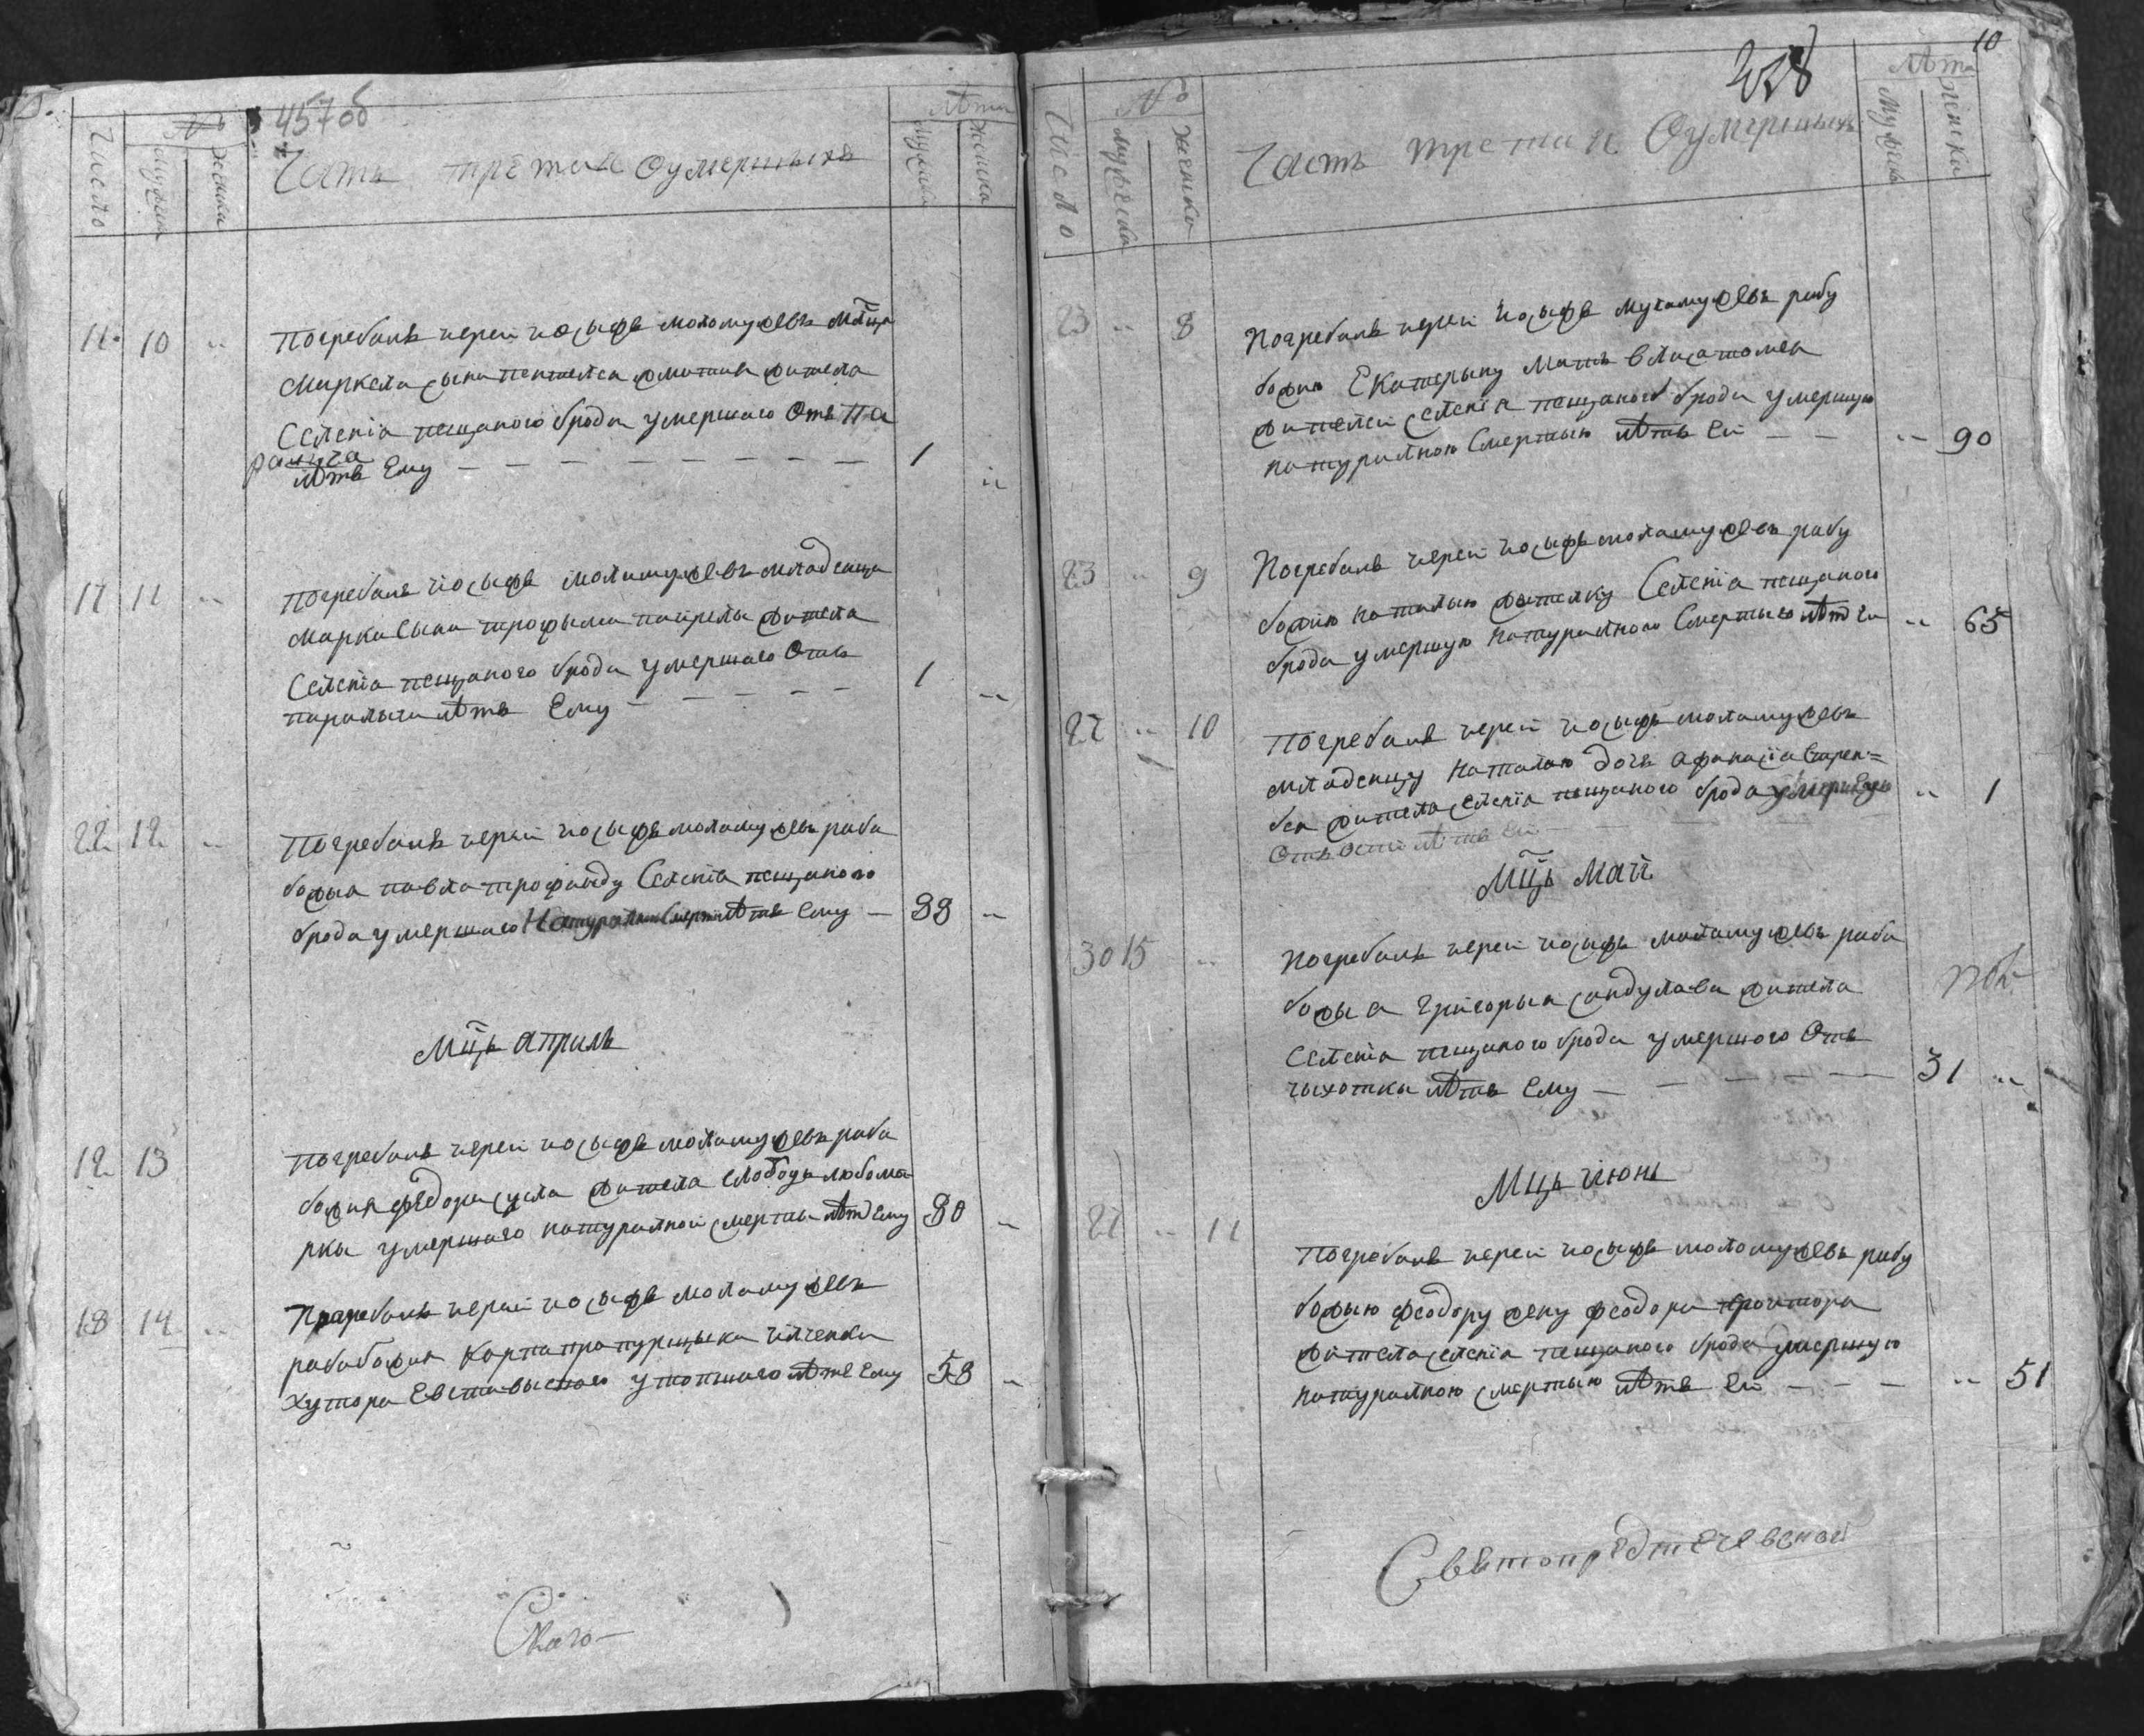 457об
Число
№
мужска
женска
Часть третая Оумершыхъ
Лѣта
мужска
женска
11. 10 Погребалъ иерей иосыфъ моложужевъ
Маркела сына пантелея жителя
Селенія песчаного брода умершаго Отъ па
ралича
лѣтъ Ему 1
17 11 Погребалъ иосыфъ моложужевъ младенца
марка сына трофыма жителя
Селенія песчаного брода умершаго Отъ
паралыча лѣтъ Ему 1
22 12 Погребалъ иерей иосыфъ моложужевъ раба
божыя павла Селенія песчаного
брода умершаго Натуралною Смерт лѣтъ Ему 88
Мцъ априль
12 13 Погребалъ иерей иосыфъ моложужевъ раба
божия федора жителя слободы любома
рки умершаго натуралной смерты лѣт Ему 80
18 14 Погребалъ иерей иосыфъ моложужевъ
раба божия Карпа
Хутора утопшаго лѣтъ Ему 58
Ского
10
238
Число
№
мужска
женска
Часть третая Оумершыхъ
Лѣта
Мужска
женска
23 8 Погребалъ иерей иосыфъ моложужевъ рабу
божию Екатерыну Мать
жителей селенія песчаного брода умершую
натуралною Смертыю лѣтъ Ей 90
23 9 Погребалъ иерей иосыфъ моложужевъ рабу
божию наталыю жителку Селенія песчаного
брода умершую натуралною Смертыю лѣт Ей 65
27 10 Погребалъ иерей иосыфъ моложужевъ
младеницу Наталию дочь афанасія
жителя селенія песчаного брода умершую
Отъ Оспы лѣтъ Ей 1
Мцъ Май
30 15 Погребалъ иерей иосыфъ моложужевъ раба
божыя Григорыя сандулава жителя
Селенія песчаного брода умершого Отъ
чыхотки лѣтъ Ему 31
Мцъ июнь
27 11 Погребалъ иерей иосыфъ моложужевъ рабу
божыю феодору жену феодора
жителя селенія песчаного брода умершую
натуралною смертыю лѣтъ Ей 51
Святопредтечевской